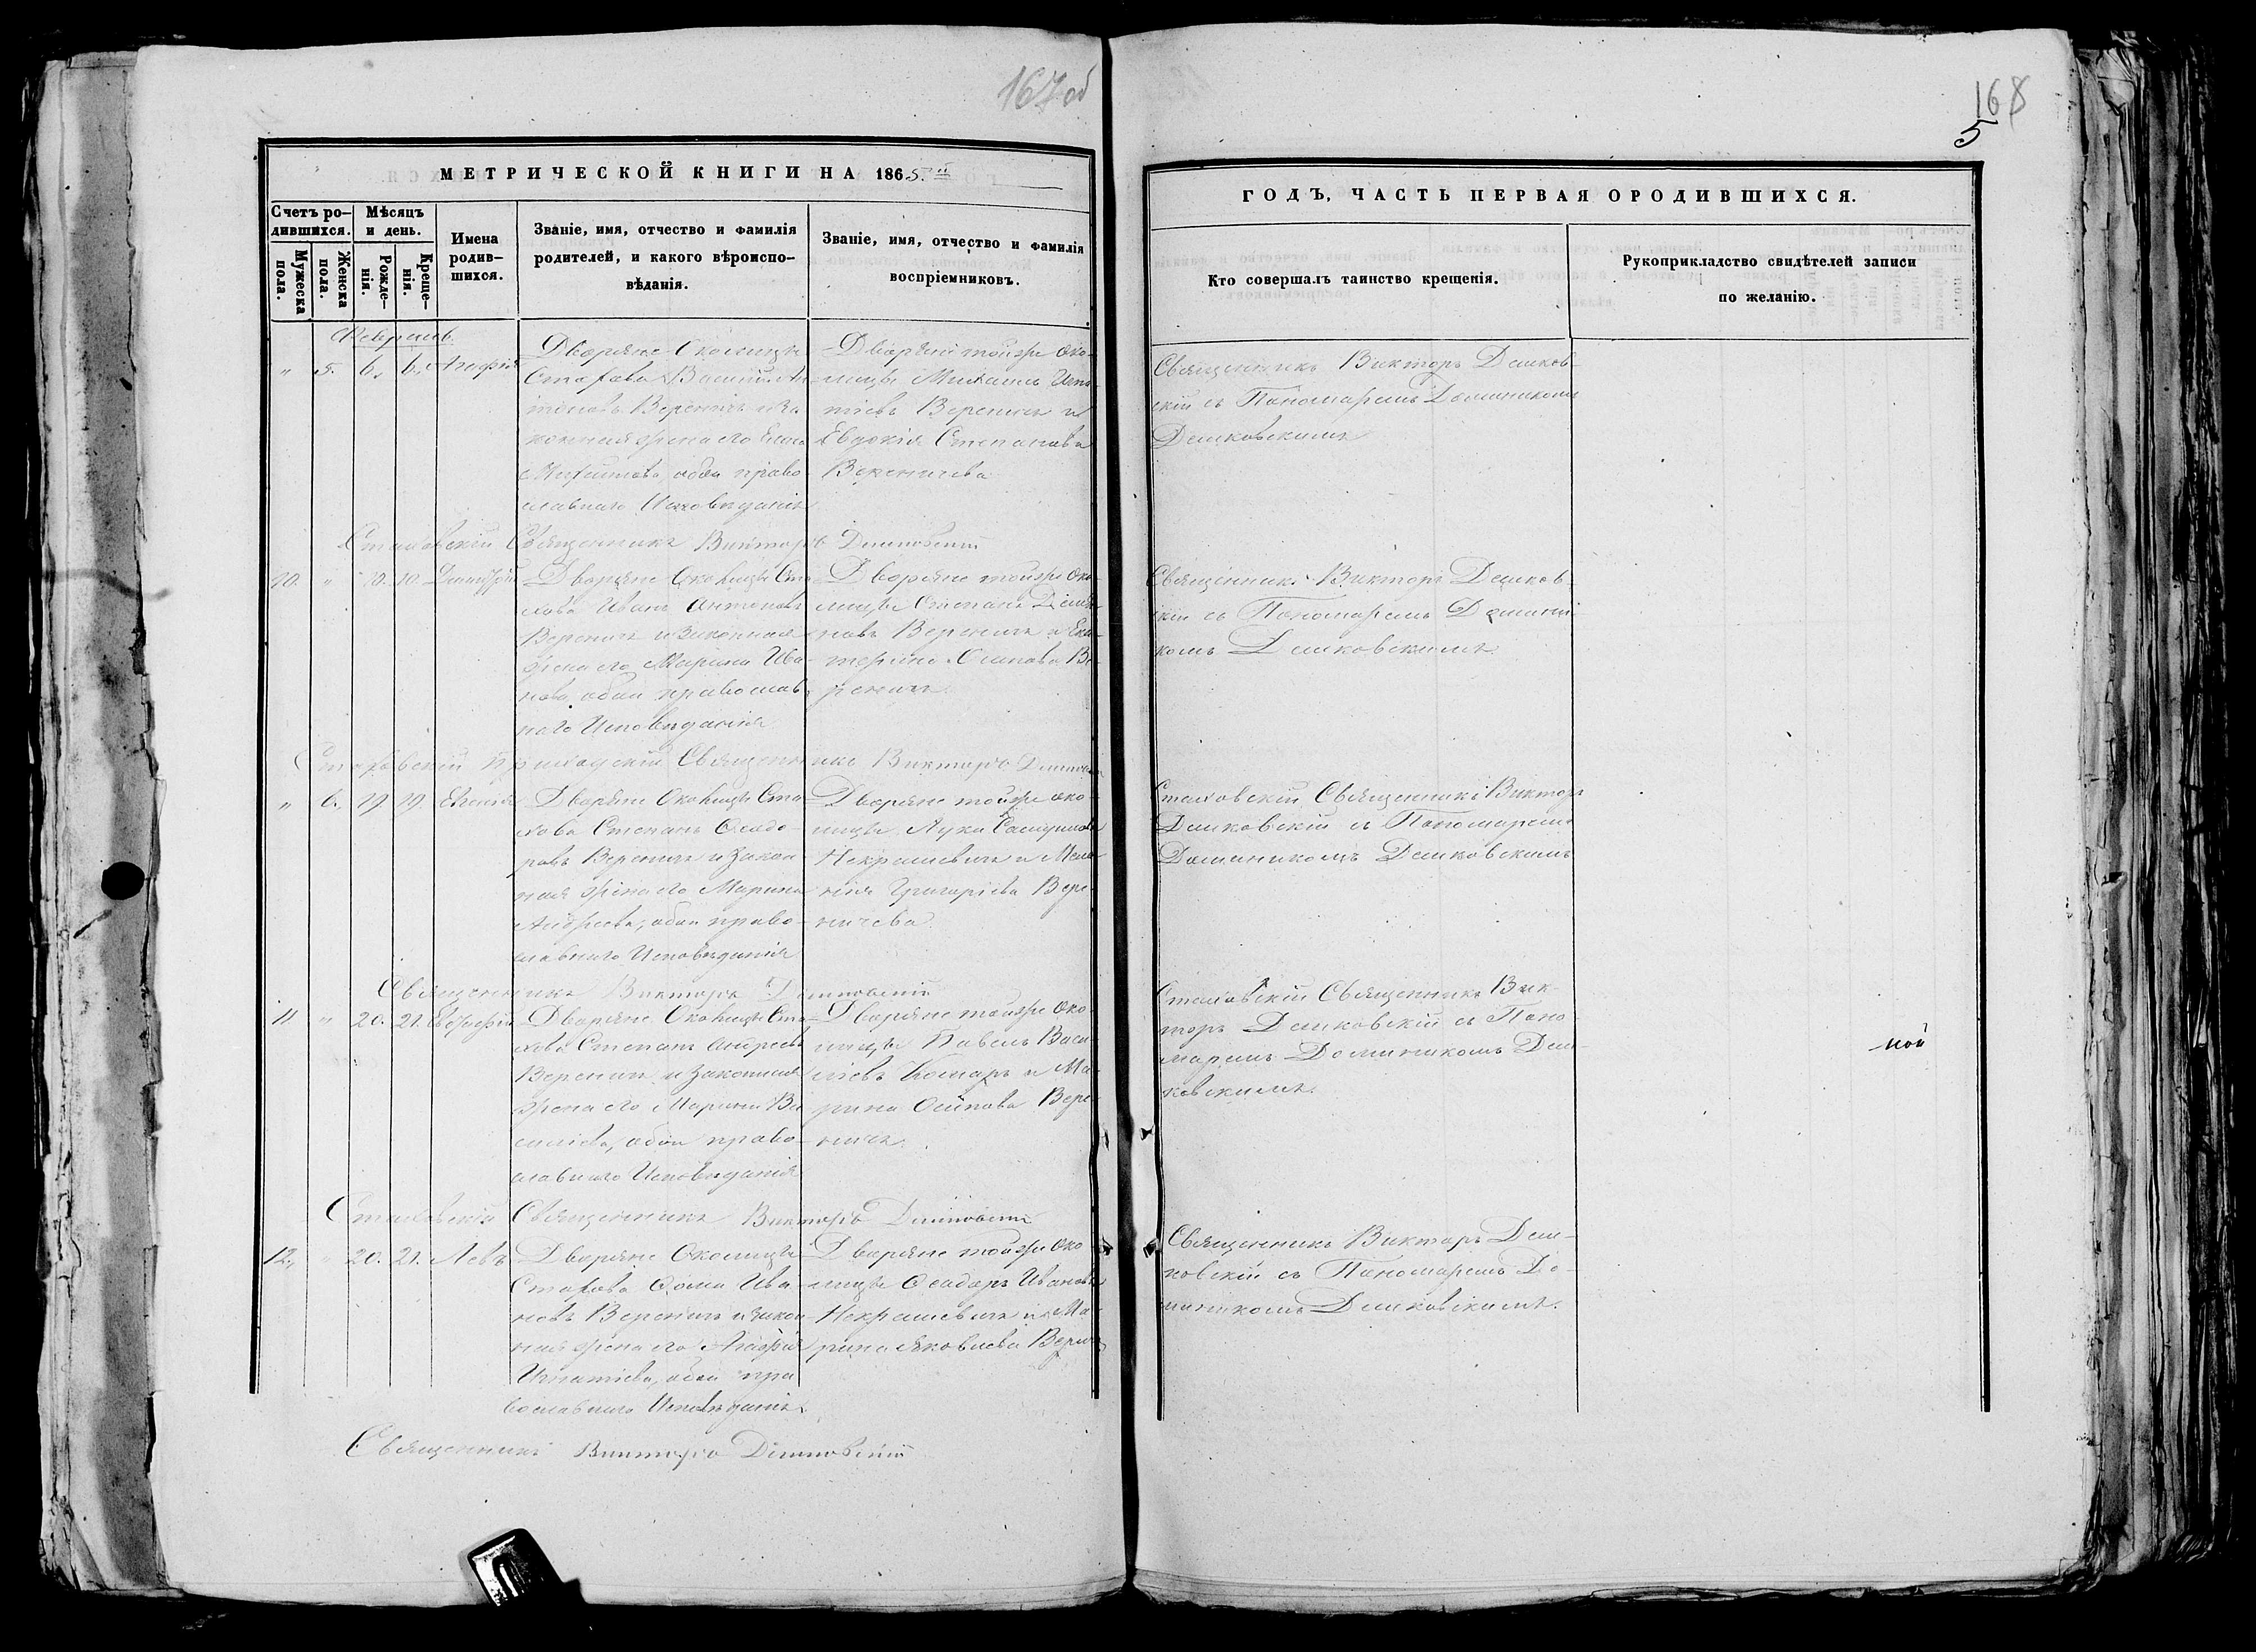 167 об
168
5
МЕТРИЧЕСКОЙ КНИГИ НА 1865.й
ГОДЪ, ЧАСТЬ ПЕРВАЯ ОРОДИВШИХСЯ.
Счетъ ро-
дившихся.
Мужеска
пола.
Женска
пола.
Мѣсяцъ
и день.
Рожде-
нія.
Креще-
нія.
Имена
родив-
шихся.
Званіе, имя, отчество и фамилія
родителей, и какого вѣроиспо-
вѣданія.
Званіе, имя, отчество и фамилія
воспріемниковъ.
Кто совершалъ таинство крещенія.
Рукоприкладство свидѣтелей записи
по желанію.
Февраль.
" 5. 6. 6. Агафія
Дворяне Околицы
Стахова Василій Ан
тоновъ Вереничъ и за
конная жена его
обои право
славнаго Исповѣданія
Дворяне тойже око-
лицы Михаилъ Игна
тіевъ Вереничъ и
Евдокія Степанова
Вереничева
Священникъ Викторъ Демков-
скій съ Пономаремъ Доминикомъ
Демковскимъ
Стаховскій Священникъ Викторъ Демковскій
10. " 10. 10. Димитрій
Дворяне Околицы Ста
хова Иванъ Антоновъ
Вереничъ и законная
жена его Марина Ива-
нова, обои православ
наго Исповѣданія
Дворяне тойже око-
лицы Степанъ
новъ Вереничъ и Ека-
терина Осипова Ве-
реничъ
Священникъ Викторъ Демков-
скій съ Пономаремъ Домини-
комъ Демковскимъ.
Стаховскій Приходскій Священникъ Викторъ Демковскій
" 6. 19. 19. Евгенія
Дворяне Околицы Ста
хова Степанъ Ѳеодо-
ровъ Вереничъ и закон-
ная жена его Марина
Андреева, обои право-
славнаго Исповѣданія
Дворяне тойже око-
лицы Лука
Некрашевичъ и Мела
нія Григоріева Вере-
ничева
Стаховскій Священникъ Викторъ
Демковскій съ Пономаремъ
Доминикомъ Демковскимъ
Священникъ Викторъ Демковскій
11 " 20. 21. Евстафій
Дворяне Околицы Ста
хова Степанъ Андреевъ
Вереничъ и законная
жена его Марина Ва
силіева, обои право-
славнаго Исповѣданія
Дворяне тойже око-
лицы Павелъ Васи-
ліевъ Комаръ и Ма-
рина Осипова Вере-
ничъ.
Стаховскій Священникъ Вик-
торъ Демковскій съ Поно-
маремъ Доминикомъ Дем-
ковскимъ.
ной
Стаховскій Священникъ Викторъ Демковскій
12. " 20. 21. Левъ
Дворяне Околицы
Стахова Ѳома Ива-
новъ Вереничъ и закон
ная жена его Агафія
Игнатіева, обои пра
вославнаго Исповѣданія.
Дворяне тойже око
лицы Ѳеодоръ Ивановъ
Некрашевичъ и Ма-
рина Яковлева Верен
Священникъ Викторъ Дем-
ковскій съ Пономаремъ До-
миникомъ Демковскимъ.
Священникъ Викторъ Демковскій